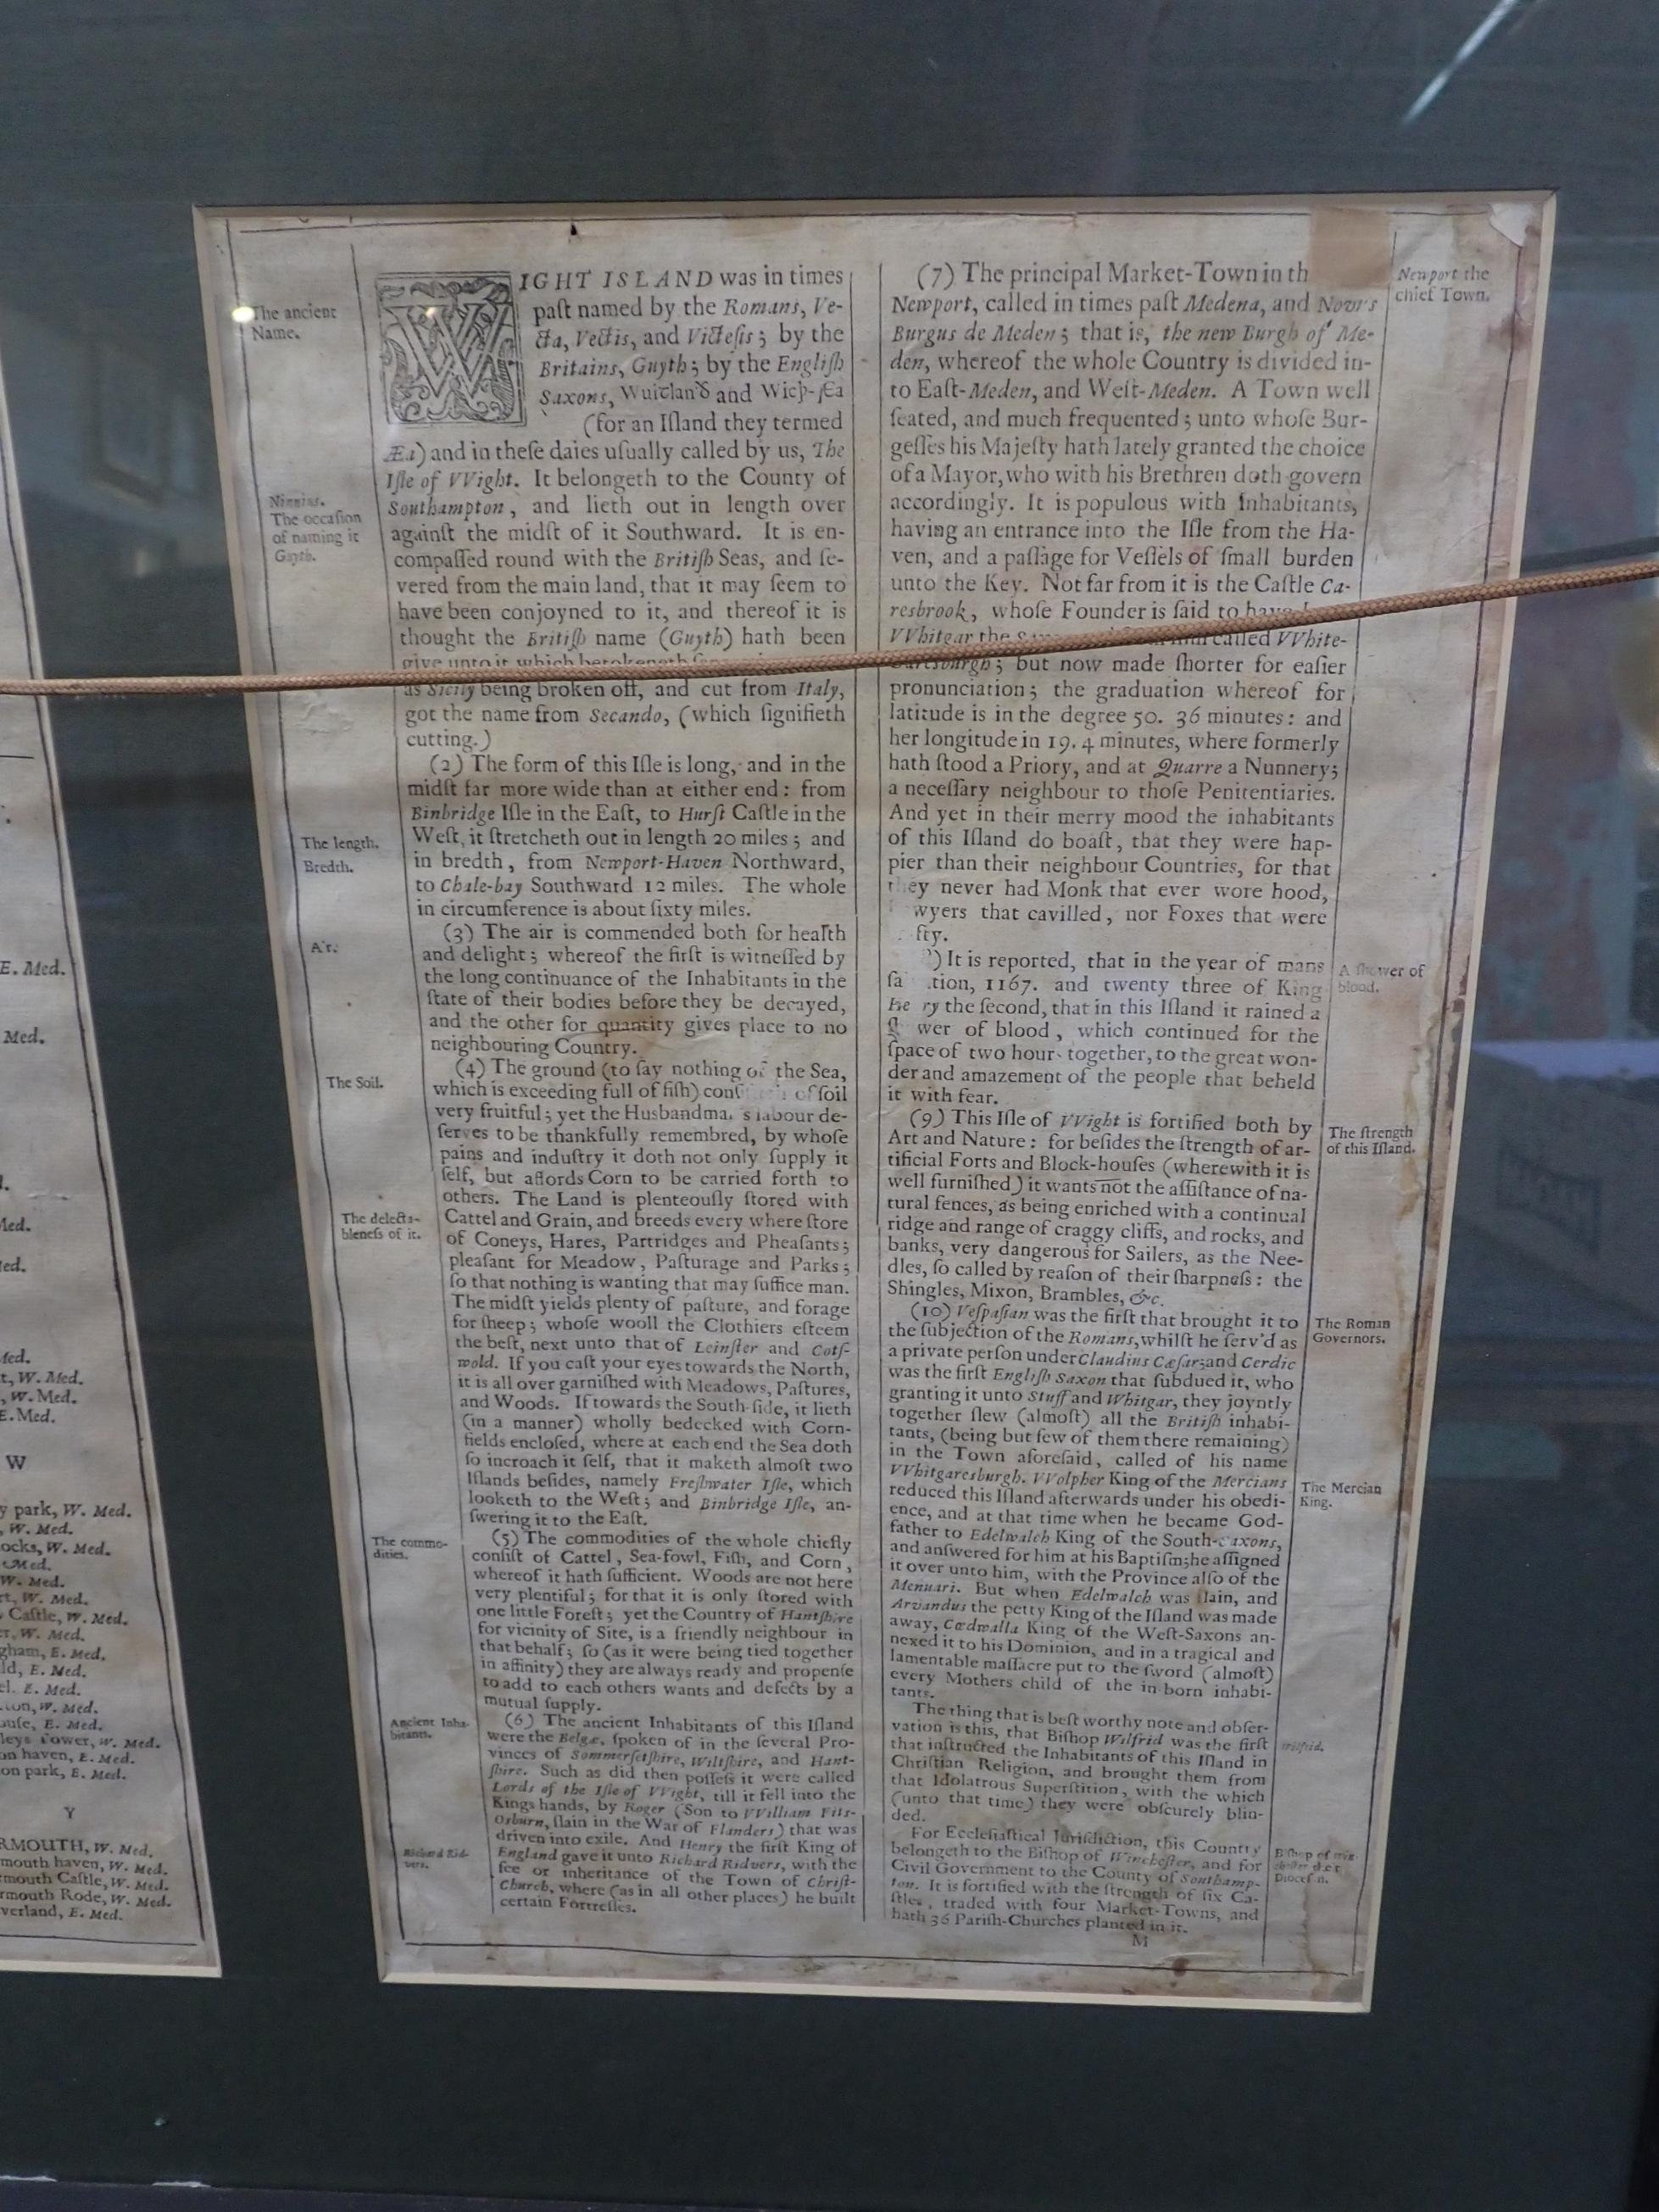 E. Med.
Med.
Med.
Med.
t, W. Med.
, W. Med.
E. Med.
W
y park, W. Med.
, W. Med.
ocks, W. Med.
Med.
W. Med.
rt, W. Med.
Castle, W. Med.
W. Med.
gham, E. Med.
ld, E. Med.
el. E. Med.
ton, W. Med.
ouſe, E. Med.
leys Tower, W. Med.
on haven, E. Med.
on park, E. Med.
Y
RMOUTH, W. Med.
mouth haven, W. Med.
rmouth Caſtle, W. Med.
rmouth Rode, W. Med.
verland, E. Med.
The ancient
Name.
Ninnius.
The occaſion
of naming it
Guyth.
The length.
Bredth.
Air.
The Soil.
The delecta-
bleneſs of it.
The commo-
dities.
Ancient Inha-
bitants.
Richard Rid-
vers.
WIGHT ISLAND was in times
paſt named by the Romans, Ve-
cta, Vectis, and Victeſis; by the
Britains, Guyth; by the Engliſh
Saxons, and
(for an Iſland they termed
Æa) and in theſe daies uſually called by us, The
Iſle of VVight. It belongeth to the County of
Southampton, and lieth out in length over
againſt the midſt of it Southward. It is en-
compaſſed round with the Britiſh Seas, and ſe-
vered from the main land, that it may ſeem to
have been conjoyned to it, and thereof it is
thought the Britiſh name (Guyth) hath been
give unto it, which betokeneth
as Sicily being broken off, and cut from Italy,
got the name from Secando, (which ſignifieth
cutting.)
(2) The form of this Iſle is long, and in the
midſt far more wide than at either end: from
Binbridge Iſle in the Eaſt, to Hurſt Caſtle in the
Weſt, it ſtretcheth out in length 20 miles; and
in bredth, from Newport-Haven Northward,
to Chale-bay Southward 12 miles. The whole
in circumference is about ſixty miles.
(3) The air is commended both for health
and delight; whereof the firſt is witneſſed by
the long continuance of the Inhabitants in the
ſtate of their bodies before they be decayed,
and the other for quantity gives place to no
neighbouring Country.
(4) The ground (to ſay nothing of the Sea,
which is exceeding full of fiſh) of ſoil
very fruitful; yet the Husbandma s labour de-
ſerves to be thankfully remembred, by whoſe
pains and induſtry it doth not only ſupply it
ſelf, but affords Corn to be carried forth to
others. The Land is plenteouſly ſtored with
Cattel and Grain, and breeds every where ſtore
of Coneys, Hares, Partridges and Pheaſants;
pleaſant for Meadow, Paſturage and Parks;
ſo that nothing is wanting that may ſuffice man.
The midſt yields plenty of paſture, and forage
for ſheep; whoſe wooll the Clothiers eſteem
the beſt, next unto that of Leinſter and Cotſ-
wold. If you caſt your eyes towards the North,
it is all over garniſhed with Meadows, Paſtures,
and Woods. If towards the South-ſide, it lieth
(in a manner) wholly bedecked with Corn-
fields encloſed, where at each end the Sea doth
ſo incroach it ſelf, that it maketh almoſt two
Iſlands beſides, namely Freſhwater Iſle, which
looketh to the Weſt; and Binbridge Iſle, an-
ſwering it to the Eaſt.
(5) The commodities of the whole chiefly
conſiſt of Cattel, Sea-fowl, Fiſh, and Corn,
whereof it hath ſufficient. Woods are not here
very plentiful; for that it is only ſtored with
one little Foreſt; yet the Country of Hantſhire
for vicinity of Site, is a friendly neighbour in
that behalf; ſo (as it were being tied together
in affinity) they are always ready and propenſe
to add to each others wants and defects by a
mutual ſupply.
(6) The ancient Inhabitants of this Iſland
were the Belgæ, ſpoken of in the ſeveral Pro-
vinces of Sommerſetſhire, Wiltſhire, and Hant-
ſhire. Such as did then poſſeſs it were called
Lords of the Iſle of VVight, till it fell into the
Kings hands, by Roger (Son to VVilliam Fits-
Osburn, ſlain in the War of Flanders) that was
driven into exile. And Henry the firſt King of
England gave it unto Richard Ridvers, with the
fee or inheritance of the Town of Chriſt-
Church, where (as in all other places) he built
certain Fortreſſes.
(7) The principal Market-Town in th
Newport, called in times paſt Medena, and Novus
Burgus de Meden; that is, the new Burgh of Me-
den, whereof the whole Country is divided in-
to Eaſt-Meden, and Weſt-Meden. A Town well
ſeated, and much frequented; unto whoſe Bur-
geſſes his Majeſty hath lately granted the choice
of a Mayor, who with his Brethren doth govern
accordingly. It is populous with Inhabitants,
having an entrance into the Iſle from the Ha-
ven, and a paſſage for Veſſels of ſmall burden
unto the Key. Not far from it is the Caſtle Ca-
resbrook, whoſe Founder is ſaid to have
VVhitgar the called VVhite-
; but now made ſhorter for eaſier
pronunciation; the graduation whereof for
latitude is in the degree 50. 36 minutes: and
her longitude in 19. 4 minutes, where formerly
hath ſtood a Priory, and at Quarre a Nunnery;
a neceſſary neighbour to thoſe Penitentiaries.
And yet in their merry mood the inhabitants
of this Iſland do boaſt, that they were hap-
pier than their neighbour Countries, for that
they never had Monk that ever wore hood,
wyers that cavilled, nor Foxes that were
fty.
) It is reported, that in the year of mans
ſa tion, 1167. and twenty three of King
He ry the ſecond, that in this Iſland it rained a
ſ wer of blood, which continued for the
ſpace of two hours together, to the great won-
der and amazement of the people that beheld
it with fear.
(9) This Iſle of VVight is fortified both by
Art and Nature: for beſides the ſtrength of ar-
tificial Forts and Block-houſes (wherewith it is
well furniſhed) it wants not the aſſiſtance of na-
tural fences, as being enriched with a continual
ridge and range of craggy cliffs, and rocks, and
banks, very dangerous for Sailers, as the Nee-
dles, ſo called by reaſon of their ſharpneſs: the
Shingles, Mixon, Brambles, &c.
(10) Veſpaſian was the firſt that brought it to
the ſubjection of the Romans, whilſt he ſerv'd as
a private perſon under Claudius Cæſar; and Cerdic
was the firſt Engliſh Saxon that ſubdued it, who
granting it unto Stuff and Whitgar, they joyntly
together ſlew (almoſt) all the Britiſh inhabi-
tants, (being but few of them there remaining)
in the Town aforeſaid, called of his name
VVhitgaresburgh. VVolpher King of the Mercians
reduced this Iſland afterwards under his obedi-
ence, and at that time when he became God-
father to Edelwalch King of the South-Saxons,
and anſwered for him at his Baptiſm; he aſſigned
it over unto him, with the Province alſo of the
Menuari. But when Edelwalch was ſlain, and
Arvandus the petty King of the Iſland was made
away, Cædwalla King of the Weſt-Saxons an-
nexed it to his Dominion, and in a tragical and
lamentable maſſacre put to the ſword (almoſt)
every Mothers child of the in-born inhabi-
tants.
The thing that is beſt worthy note and obſer-
vation is this, that Biſhop Wilfrid was the firſt
that inſtructed the Inhabitants of this Iſland in
Chriſtian Religion, and brought them from
that Idolatrous Superſtition, with the which
(unto that time) they were obſcurely blin-
ded.
For Eccleſiaſtical Jurisdiction, this Country
belongeth to the Biſhop of Wincheſter, and for
Civil Government to the County of Southamp-
ton. It is fortified with the ſtrength of ſix Ca-
ſtles, traded with four Market-Towns, and
hath 36 Pariſh-Churches planted in it.
M
Newport the
chief Town.
A ſhower of
blood.
The ſtrength
of this Iſland.
The Roman
Governors.
The Mercian
King.
Wilfrid.
Biſhop of